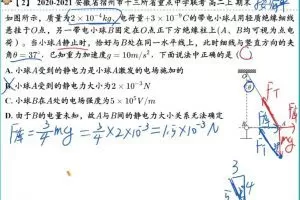 【2】 2020-2021 安徽省宿州市十三所省重点中学联考 高二上 期末
如图所示，质量为2×10⁻⁴kg，电荷量+3×10⁻⁹C的带电小球A用轻质绝缘细线
悬挂于O点，另一带电小球B固定在O点正下方绝缘柱上（A、B均可视为点电
荷）。当小球A静止时，恰好与B处在同一水平线上，此时细线与竖直方向的夹
角θ=37°，已知重力加速度g=10m/s²，下面说法中正确的是（
A. 小球A受到的静电力是小球A激发的电场施加的
B. 小球A受到的静电力大小为2×10⁻³
C. 小球B在A处的电场强度为5×10⁵V/m
D. 由于B的电量未知，故A与B间的静电力大小关系无法确定
F库=3/4mg=3/4×2×10⁻³=1.5×10⁻³N
F_T
F库
A
mg
3
5
4